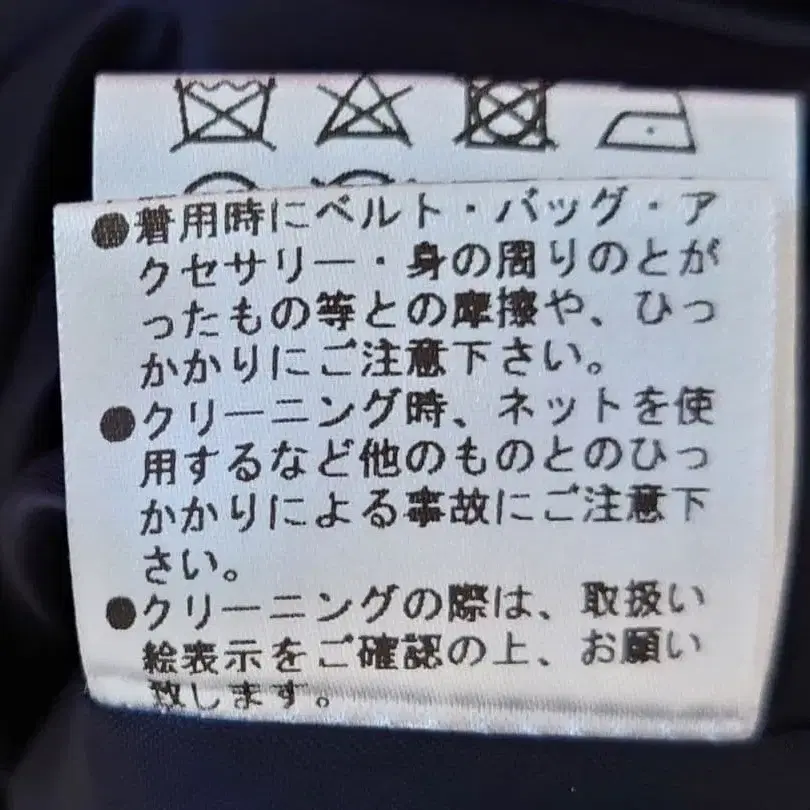 ●着用時にベルト・バッグ・ア
クセサリー・身の周りのとが
ったもの等との摩擦や、ひっ
かかりにご注意下さい。
●クリーニング時、ネットを使
用するなど他のものとのひっ
かかりによる事故にご注意下
さい。
●クリーニングの際は、取扱い
絵表示をご確認の上、お願い
致します。